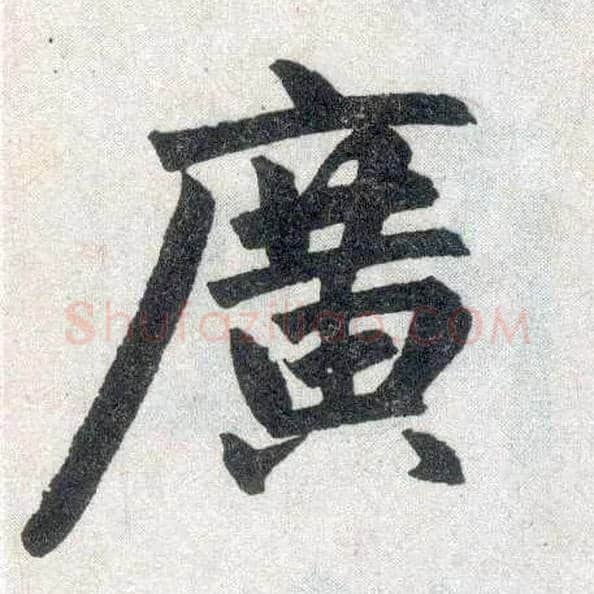 廣
Shufaziliao.COM